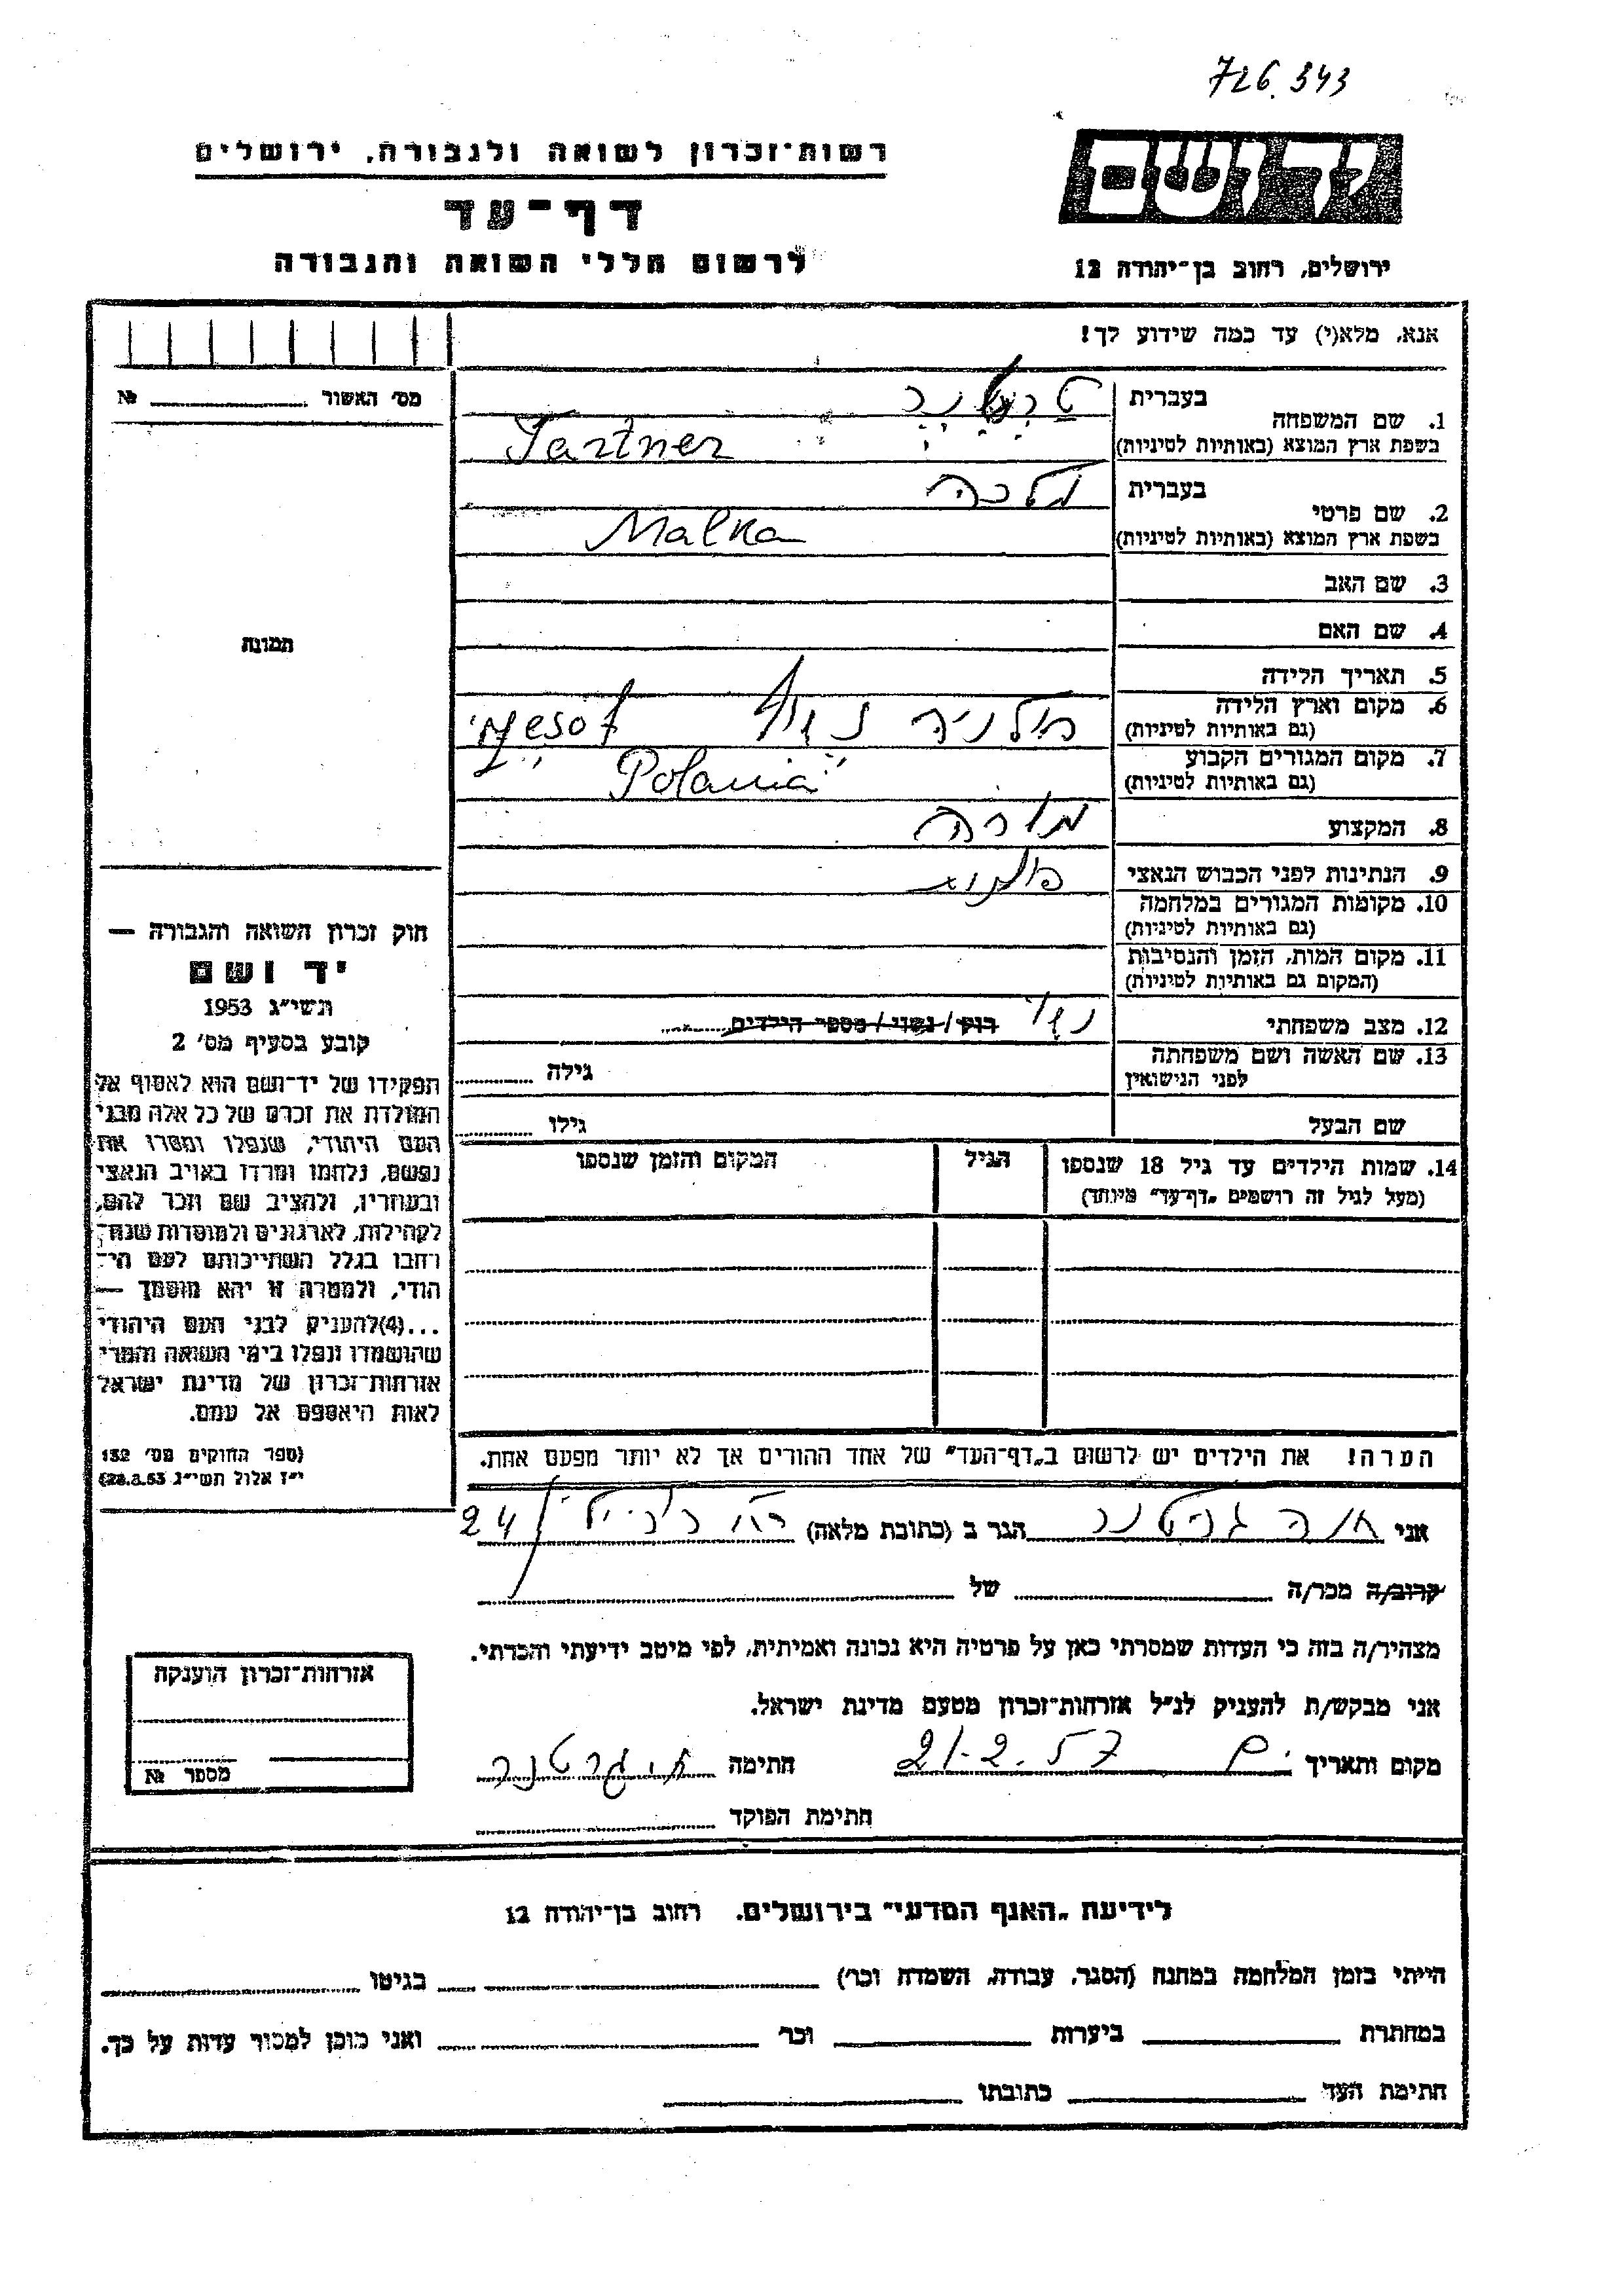 726.343
רשות־זכרון לשואה ולגבורה, ירושלים
דף־עד
לרשום חללי השואה והגבורה
יד ושם
ירושלים, רחוב בן־יהודה 12
אנא, מלא(י) עד כמה שידוע לך!
מס׳ האשור № 
תמונה
1. שם המשפחה
בעברית
בשפת ארץ המוצא (באותיות לטיניות) Tartner
2. שם פרטי
בעברית מלכה
בשפת ארץ המוצא (באותיות לטיניות) Malka
3. שם האב
4. שם האם
5. תאריך הלידה
6. מקום וארץ הלידה
(גם באותיות לטיניות)
7. מקום המגורים הקבוע
(גם באותיות לטיניות) Polania
8. המקצוע מורה
9. הנתינות לפני הכבוש הנאצי
10. מקומות המגורים במלחמה
(גם באותיות לטיניות)
11. מקום המות, הזמן והנסיבות
(המקום גם באותיות לטיניות)
12. מצב משפחתי רוק/נשוי/מספר הילדים
13. שם האשה ושם משפחתה
לפני הנישואין
גילה
שם הבעל גילו
14. שמות הילדים עד גיל 18 שנספו הגיל המקום והזמן שנספו
(מעל לגיל זה רושמים „דף־עד״ מיוחד)
הערה! את הילדים יש לרשום ב„דף־העד״ של אחד ההורים אך לא יותר מפעם אחת.
חוק זכרון השואה והגבורה —
יד ושם
תשי״ג 1953
קובע בסעיף מס׳ 2
תפקידו של יד־ושם הוא לאסוף אל
המולדת את זכרם של כל אלה מבני
העם היהודי, שנפלו ומסרו את
נפשם, נלחמו ומרדו באויב הנאצי
ובעוזריו, ולהציב שם וזכר להם,
לקהילות, לארגונים ולמוסדות שנח־
רבו בגלל השתייכותם לעם הי־
הודי, ולמטרה זו יהא מוסמך —
...(4)להעניק לבני העם היהודי
שהושמדו ונפלו בימי השואה והמרי
אזרחות־זכרון של מדינת ישראל
לאות היאספם אל עמם.
(ספר החוקים מס׳ 132
י״ז אלול תשי״ג 28.8.53)
אני חנה גרטנר הגר ב (כתובת מלאה) 24
קרוב/ה מכר/ה של
מצהיר/ה בזה כי העדות שמסרתי כאן על פרטיה היא נכונה ואמיתית, לפי מיטב ידיעתי והכרתי.
אני מבקש/ת להעניק לנ״ל אזרחות־זכרון מטעם מדינת ישראל.
מקום ותאריך 21.2.57 חתימה ח. גרטנר
חתימת הפוקד
אזרחות־זכרון הוענקה
מספר №
לידיעת „האגף המדעי״ בירושלים, רחוב בן־יהודה 12
הייתי בזמן המלחמה במחנה (הסגר, עבודה, השמדה וכו׳) בגיטו
במחתרת ביערות וכו׳ ואני מוכן למסור עדות על כך.
חתימת העד כתובתו